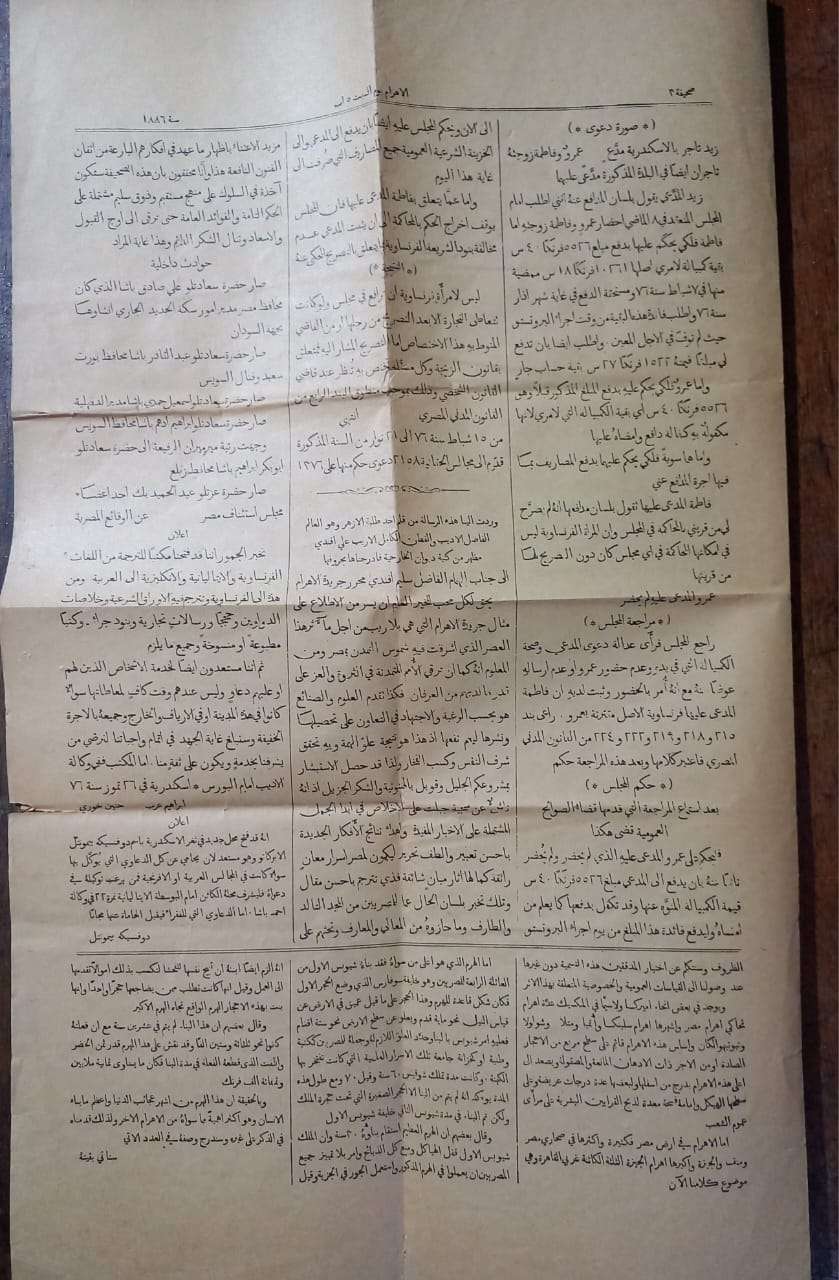 صحيفة ٣
الاهرام يوم السبت ٥ اب
سنة ١٨٨٦
(* صورة دعوى *)
زيد تاجر بالاسكندرية مدَّعٍ عمرو وفاطمة زوجتهُ
تاجران ايضاً في البلدة المذكورة مدَّعى عليها
زيد المدَّعي يقول بلسان المدافع عنهُ انني اطلب امام
المجلس المنعقد في ٨ الماضي احضار عمرو وفاطمة زوجتهِ اما
فاطمة فلكي يحكم عليها بدفع مبلغ ٥٥٢٦ فرنكاً ٤٠ س
بقية كمبيالة لامري اصلها ١٠٢٦١ فرنكاً ١٨ س ممضية
منها في ٧ شباط سنة ٧٦ ومستحقة الدفع في غاية شهر اذار
سنة ٧٦ واطلب فائدة هذا البقية من وقت اجراء البروتستو
حيث لم توفَ في الاجل المعين . واطلب ايضا بان تدفع
لي مبلغاً قيمتهُ ١٥٢٢ فرنكاً ٢٧ س بقية حساب جارٍ
واما عمرو فلكي يحكم عليهِ بدفع المبلغ المذكور قبلاً وهو
٥٥٢٦ فرنكاً ٤٠ س أي بقية الكمبيالة التي لامري لانها
مكفولة بهِ كتاله دافع وامضاهُ عليها
واما هما سويةً فلكي يحكم عليهما بدفع المصاريف بما
فيها اجرة المدافع عني
فاطمة المدعى عليها تقول بلسان مدافعها انهُ لم يصرَّح
لي من قريني بالمحاكمة في المجلس وان المرأة الفرنساوية ليس
في امكانها المحاكمة في أي مجلس كان دون التصريح لها
من قرينها
عمرو المدعى عليهِ لم يحضر
(* مراجعة المجلس *)
راجع المجلس فرأى عدالة دعوى المدعي وصحة
الكمبيالة التي في يدهِ وعدم حضور عمرو او عدم ارسالهِ
عوضاً عنهُ مع انهُ أُمر بالحضور وثبت لديهِ ان فاطمة
المدعى عليها فرنساوية الاصل مقترنة بعمرو . راعى بند
٢١٥ و ٢١٨ و ٢١٩ و ٢٢٢ و ٢٢٤ من القانون المدني
المصري فاعتبر كلامها وبعد هذه المراجعة حكم
(* حكم المجلس *)
بعد استماع المراجعة التي قدمها قضاء الصوالح
العمومية قضى هكذا
فيحكم على عمرو المدعى عليهِ الذي لم يحضر ولم يُحضر
نائباً عنهُ بان يدفع الى المدعي مبلغ ٥٥٢٦ فرنكاً ٤٠ س
قيمة الكمبيالة المنوّه عنها وقد تكفل بدفعها كما يعلم من
امضاهُ وليدفع فائدة هذا المبلغ من يوم اجراء البروتستو
الى الان ويحكم المجلس عليهِ ايضاً بان يدفع الى المدعي والى
الخزينة الشرعية العمومية جميع المصاريف التي صُرفت الى
غاية هذا اليوم
واما عما يتعلق بفاطمة المدعى عليها فان المجلس
يوقف اخراج الحكم بالمحاكمة الى ان يثبت المدعي عدم
مخالفة بنود الشريعة الفرنساوية بما يتعلق بالتصريح المحكى عنهُ
(* النتيجة *)
ليس لامرأة فرنساوية ان ترافع في مجلس ولو كانت
تتعاطى التجارة الا بعد التصريح من رجلها او من القاضي
المنوط بهِ هذا الاختصاص اما التصريح المشار اليه فمتعلق
بقانون الزيجة وكل مسئلة تختص بهِ تُنظر عند قاضي
القانون الشخصي وذلك بموجب منطوق البند الرابع من
القانون المدني المصري انتهى
من ١٥ شباط سنة ٧٦ الى ٢١ نوار من السنة المذكورة
قدّم الى مجالس الحقانية ٢١٥٨ دعوى حكم منها على ١٣٧٦
وردت الينا هذه الرسالة من قلم احد طلبة الازهر وهو العالم
الفاضل الاديب والفطن الكامل الاريب علي افندي
مظهر من كتبة ديوان الخارجية فادرجناها بحروفها
الى جناب الهمام الفاضل سليم افندي محرر جريدة الاهرام
يحق لكل محب للخير العليم ان يسر من الاطلاع على
مثال جريدة الاهرام التي هي بلا ريب من اجل مآثر هذا
العصر الذي اشرقت فيهِ شموس التمدن بمصر ومن
المعلوم انهُ كما ان ترقي الأمم المتمدنة في الثروة والعز على
قدر ما لديهم من العرفان . فكذا تقدم العلوم والصنائع
هو بحسب الرغبة والاجتهاد في التعاون على تحصيلها
ونشرها ليعم نفعها اذ هذا هو نتيجة علوّ الهمة وبهِ تحقق
شرف النفس وكسب الفخار ولقد حصل الاستبشار
بمشروعكم الجليل وقوبل بالممنونية والشكر الجزيل اذ انهُ
ناشٍ عن سجية جبلت على الاخلاص في ابدا الجمل
المشتملة على الاخبار المفيدة واهداء نتائج الأفكار الجديدة
باحسن تعبير والطف تحرير ليكون لمصر اسرار معانٍ
رائقة كما لها آثار مبانٍ شائقة فذي تترجم باحسن مقال
وتلك تخبر بلسان الحال عما للمصريين من المجد التالد
والطارف وما حازوهُ من المعالي والمعارف ونحثهم على
مزيد الاعتناء باظهار ما عهد في أفكارهم البارعة من اتقان
الفنون النافعة هذا واننا محققون بان هذه الصحيفة ستكون
آخذة في السلوك على منهج مستقيم وذوق سليم مشتملة على
الحكم التامة والفوائد العامة حتى ترقى الى أوج القبول
والاسعاد وتنال الشكر الدائم وهذا غاية المراد
حوادث داخلية
صار حضرة سعادتلو علي صادق باشا الذي كان
محافظ مصر مدير امور سكة الحديد الجاري انشاوها
بجهة السودان
صار حضرة سعادتلو عبد القادر باشا محافظ بورت
سعيد وقنال السويس
صار حضرة سعادتلو اسمعيل حمدي باشا مدير الدقهلية
صار حضرة سعادتلو ابراهيم ادهم باشا محافظ السويس
وجهت رتبة ميرميران الرفيعة الى حضرة سعادتلو
ابوبكر ابراهيم باشا محافظ زيلع
صار حضرة عزتلو عبد الحميد بك احد اعضاء
مجلس استئناف مصر عن الوقائع المصرية
اعلان
نخبر الجمهور اننا قد فتحنا مكتباً للترجمة من اللغات
الفرنساوية والايتاليانية والانكليزية الى العربية . ومن
هذه الى الفرنساوية ونترجم فيهِ الاوراق الشرعية وخلاصات
الدواوين وحججاً ورسالات تجارية وبنود جرائد . وكتباً
مطبوعة او منسوخة وجميع ما يلزم
ثم اننا مستعدون ايضاً لخدمة الاشخاص الذين لهم
او عليهم دعاوٍ وليس عندهم وقت كافٍ لمعاطاتها سواءٌ
كانوا في هذه المدينة او في الارياف والخارج وجميعهُ بالاجرة
الخفيفة وسنبلغ غاية الجهد في اتمام واجباتنا لنرضي من
يشرفنا بخدمةٍ ويكون على ثقة منا . اما المكتب ففي وكالة
الاديب امام البورس * اسكندرية في ٢٦ تموز سنة ٧٦
ابراهيم عرب حنين خوري
اعلان
انهُ قد فتح محل جديد في ثغر الاسكندرية باسم دوفسيكه بيمونتل
الابوكاتو وهو مستعد لان يحامي عن كل الدعاوي التي يُوكل بها
سواءٌ كانت في المجالس العربية او الافرنجية فمن يرغب توكيلهُ في
دعواهُ فليشرف محلهُ الكائن امام البوسطة الايتاليانية نمرة ٢٢ في وكالة
احمد باشا . اما الدعاوي التي للفقراء فيقبل المحاماة عنها مجاناً
دوفسيكه بيمونتل
الظروف وستكم عن اخبار المدققين هذه التسمية دون غيرها
عند وصولنا الى القياسات العمومية والخصوصية المتعلقة بهذا الاثر
ويوجد في بعض انحاء اميركا ولاسيما في المكسيك عدة اهرام
تحاكي اهرام مصر واشهرها اهرام
الصلدة او من الآجر ذات الادهان المانعة والمصقولة ويصعد الى
اعلى هذه الاهرام بدرج من اسفلها ولبعضها عدة درجات عريضة وعلى
سطحها الهيكل وامامهُ فسحة معدة لذبح القرابين البشرية على مرأى
عموم الشعب
اما الاهرام في ارض مصر فكثيرة واكثرها في صحاري مصر
ومنف والجيزة واكبرها اهرام الجيزة الثلثة الكائنة غربي القاهرة وهي
موضوع كلامنا الآن
اما الهرم الذي هو اعلى من سواهُ فقد بناهُ شيوبس الاول من
العائلة الرابعة للمصريين وهو خليفة سوفارس الذي وضع الحجر الاول
فكان شكل قاعدة للهرم وهذا الحجر على ما قيل عميق في الارض عن
قياس النيل نحو ماية قدم ويعلو عن سطح الارض نحو ستة اقدام
فعليهِ امر شيوبس بالبناء
المدة يوكد انهُ لم يتم من البناء الا الحجر الصغيرة التي تحت حجرة الملك
ولكن تم البناء في مدة شيوبس الثاني خليفة شيوبس الاول
وقال بعضهم ان الهرم العظيم استقام بناوهُ ٢٠ سنة وان الملك
شيوبس الاول قفل الهياكل ومنع كل الذبائح وامر بلا تمييز جميع
المصريين ان يعملوا في الهرم المذكور واستعمل الجور في الجزية وقيل
انهُ الزم ايضاً ابنة
الى العمل وقيل انها كانت تطلب ممن يضاجعها حجراً واحداً وانها
بنت بهذه الاحجار الهرم الواقع تجاه الهرم الاكبر
وقال بعضهم ان هذا البناء لم يتم في عشرين سنة مع ان فعلتهُ
كانوا نحو ثلاثماية وستين الفاً وقد نقش على هذا الهرم قدر ثمن الخضر
واللفت الذي قطعتهُ الفعلة في مدة البناء فكان ما يساوي ثمانية ملايين
وثمانماية الف فرنك
وبالحقيقة ان هذا الهرم من اشهر عجائب الدنيا واعظم ما بناه
الانسان وهو اكثر اهمية مما سواهُ من الاهرام الاخر ولذلك قدمناه
في الذكر على غيره وسندرج وصفهُ في العدد الاتي
ستاتي بقيتهُ